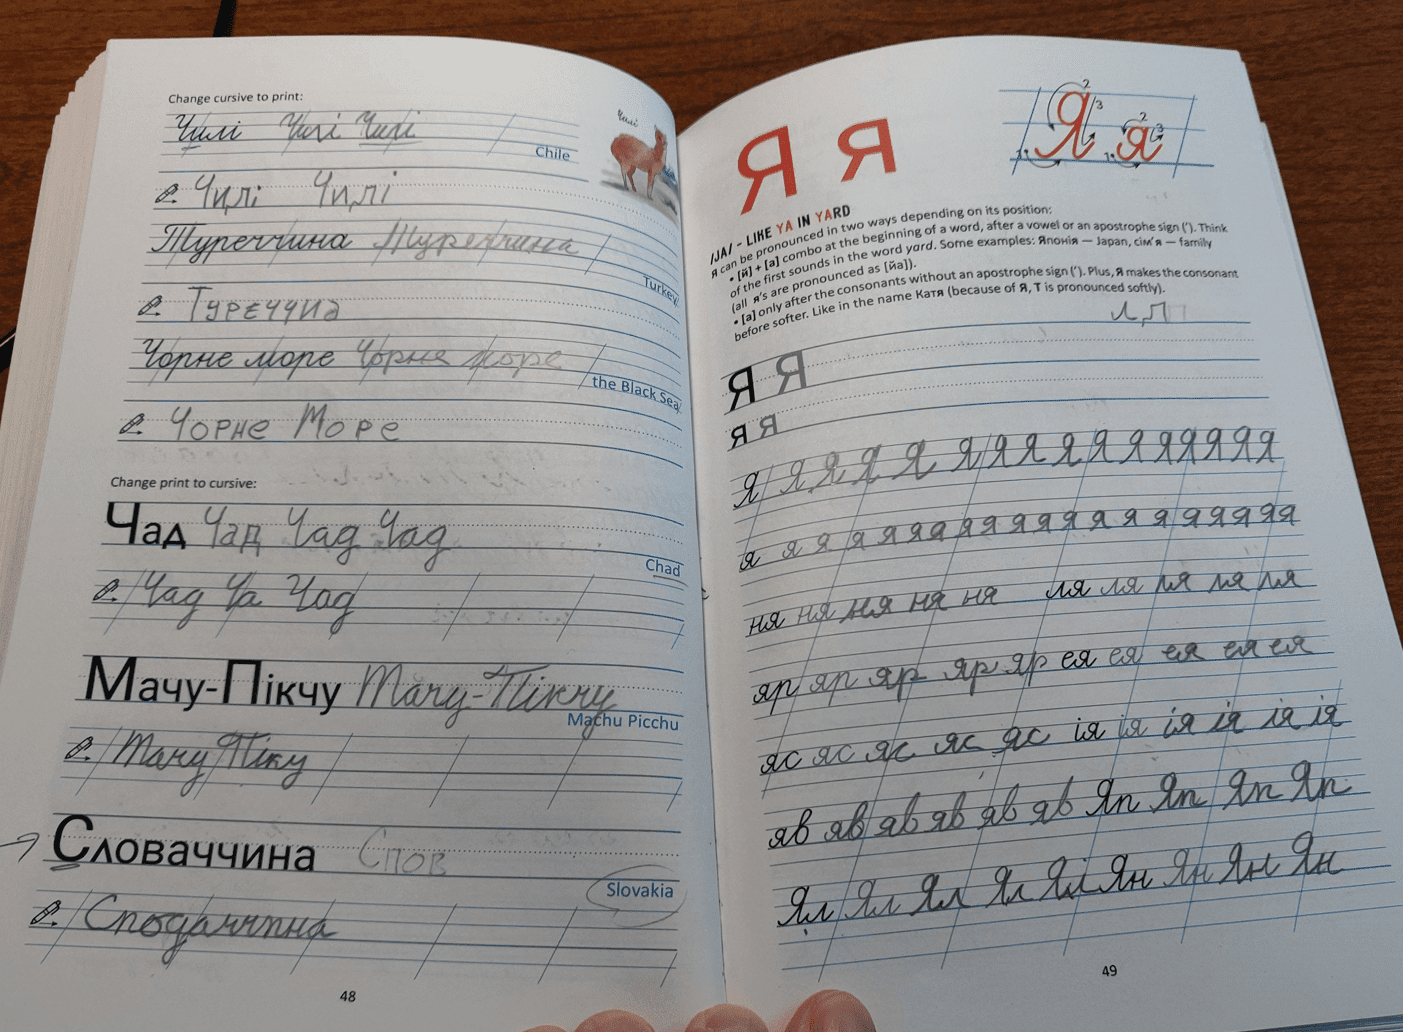 Change cursive to print:
Чилі Чилі Чилі
Chile
Чилі
Чилі Чилі
Туреччина Туреччина
Turkey
Туреччина
Чорне море Чорне море
the Black Sea
Чорне Море
Change print to cursive:
Чад Чад Чад Чад
Chad
Чад Ча Чад
Мачу-Пікчу Мачу-Пікчу
Machu Picchu
Мачу Піку
Словаччина Слов
Slovakia
48
Я я
2
3
1
2
3
1
/JA/ – LIKE YA IN YARD
Я can be pronounced in two ways depending on its position:
• [й] + [а] combo at the beginning of a word, after a vowel or an apostrophe sign ('). Think
of the first sounds in the word yard. Some examples: Японія — Japan, сім'я — family
(all я's are pronounced as [йа]).
• [а] only after the consonants without an apostrophe sign ('). Plus, Я makes the consonant
before softer. Like in the name Катя (because of Я, Т is pronounced softly).
Л, Л
Я Я
я я
Я Я Я Я Я Я Я Я Я Я Я Я Я Я Я Я
я я я я я я я я я я я я я я я я я я
ня ня ня ня ня ля ля ля ля ля
яр яр яр яр яр ея ея ея ея ея
яс яс яс яс яс ія ія ія ія ія ія
яв яв яв яв яв яв Яп Яп Яп Яп
Ял Ял Ял Ял Ял Ян Ян Ян Ян
49